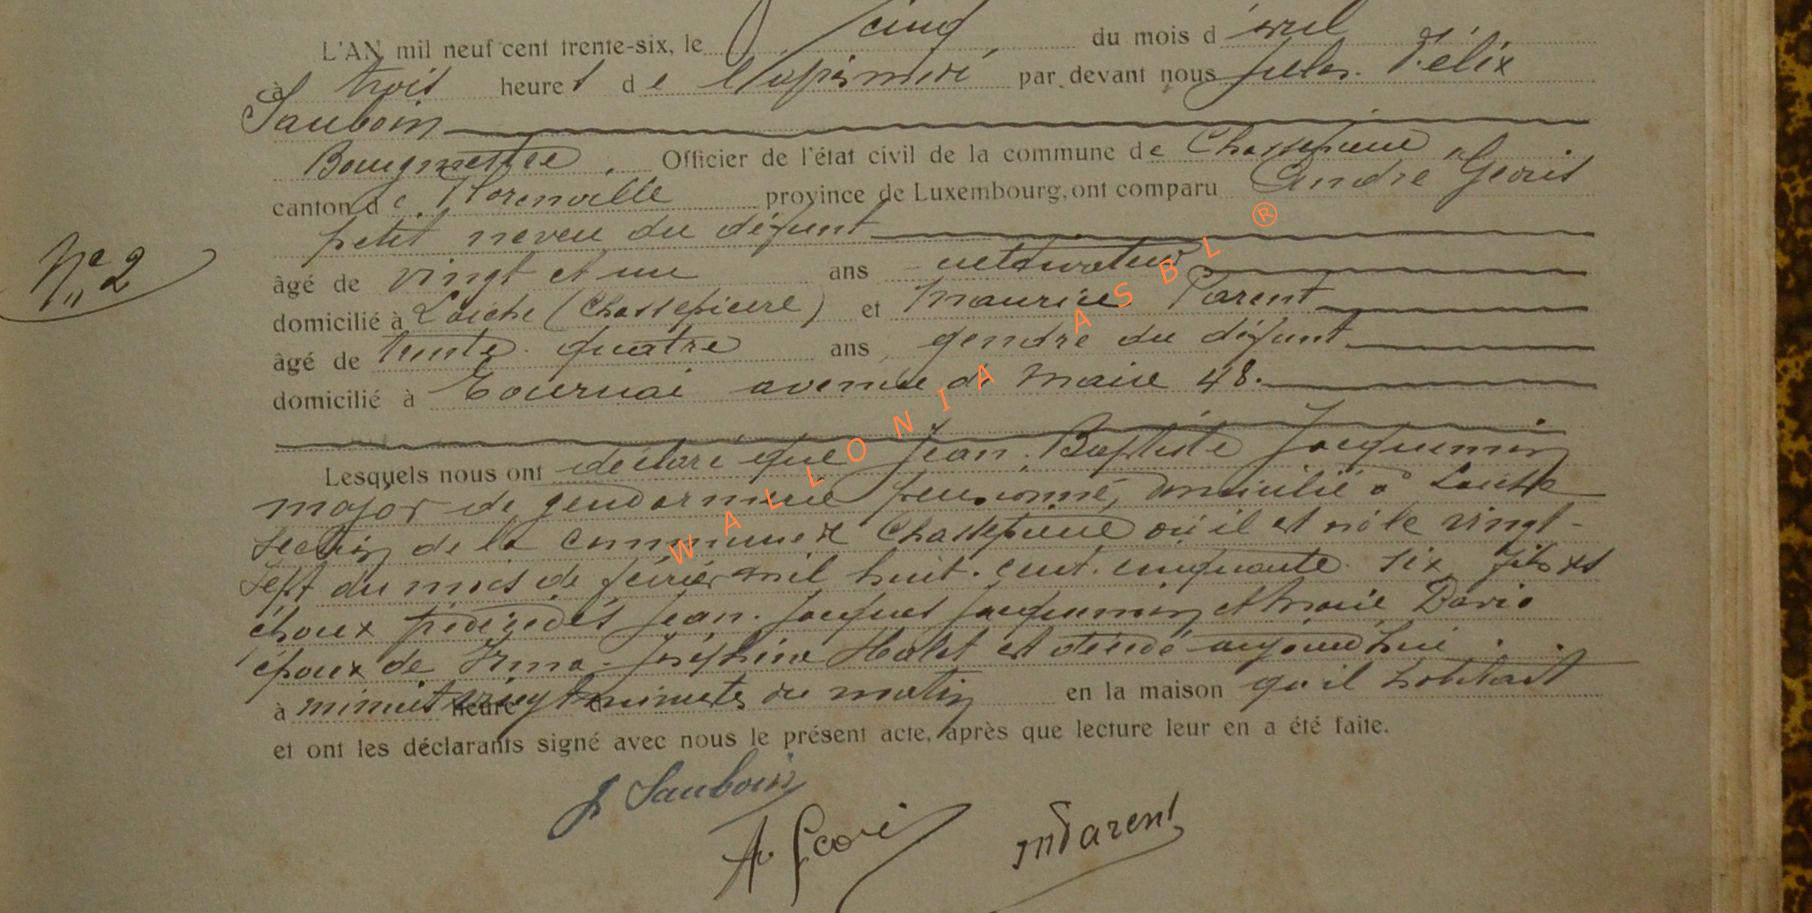 L'AN mil neuf cent trente-six, le cinq du mois d'avril
à trois heures de l'après midi par devant nous Jules Félix
Sauboin
Bourgmestre, Officier de l'état civil de la commune de Chassepierre
canton de Florenville province de Luxembourg, ont comparu André Georis
petit neveu du défunt
N° 2
âgé de vingt et un ans cultivateur
domicilié à Laiche (Chassepierre) et Maurice Parent
âgé de trente-quatre ans gendre du défunt
domicilié à Tournai avenue de Maire 48.
Lesquels nous ont déclaré que Jean-Baptiste Jacquemin
major de gendarmerie pensionné, domicilié à Laiche
section de la commune de Chassepierre où il est né le vingt-
sept du mois de février mil huit-cent-cinquante-six, fils des
époux prédécédés Jean-Jacques Jacquemin et Marie Davio
époux de Irma-Joséphine Halet est décédé aujourd'hui
à minuit heure vingt minutes du matin en la maison qu'il habitait
et ont les déclarants signé avec nous le présent acte, après que lecture leur en a été faite.
J Sauboin
A. Georis
M Parent
WALLONIA ASBL ®